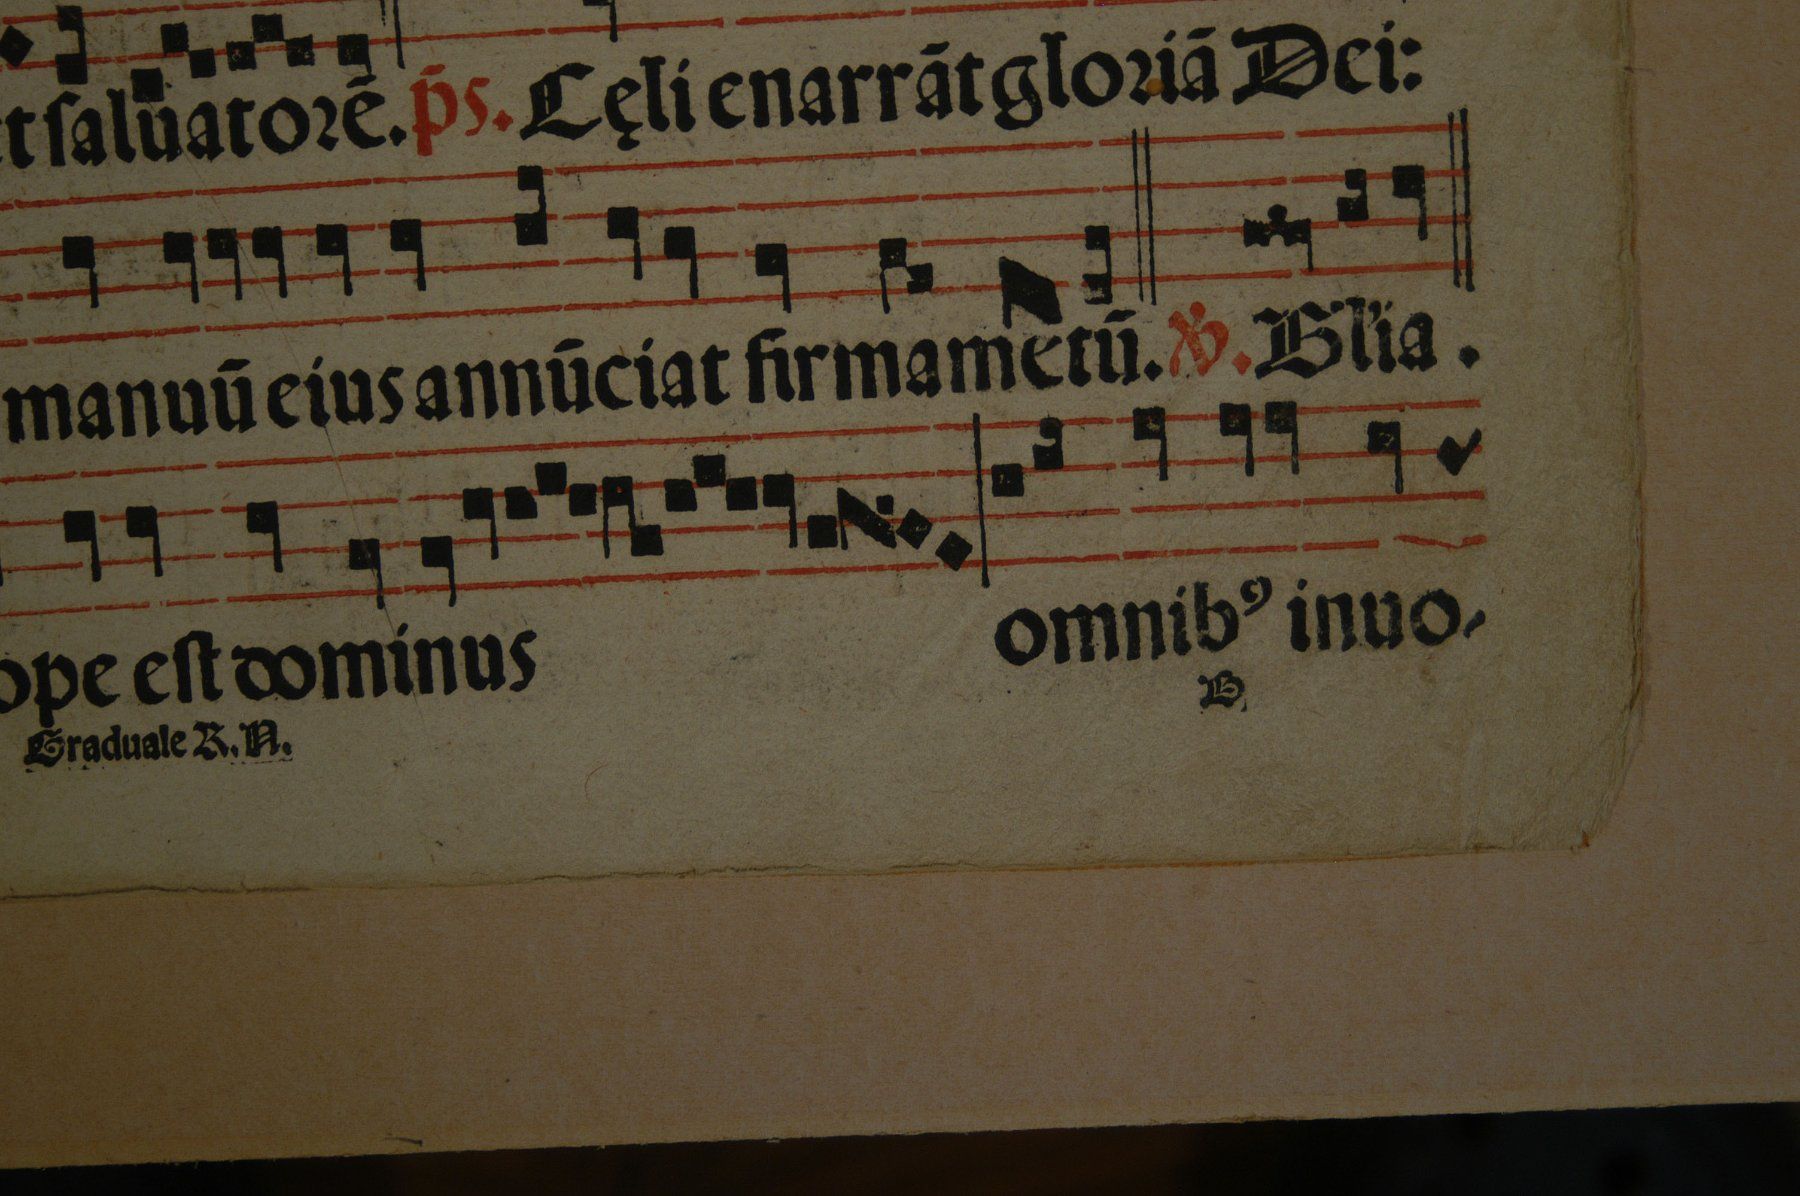 et saluatorē. p̄s. Cęli enarrāt gloriā Dei:
manuū eius annūciat firmametū. ℣. Gl'ia.
ope est dominus omnibꝰ inuo-
Graduale R. N. B